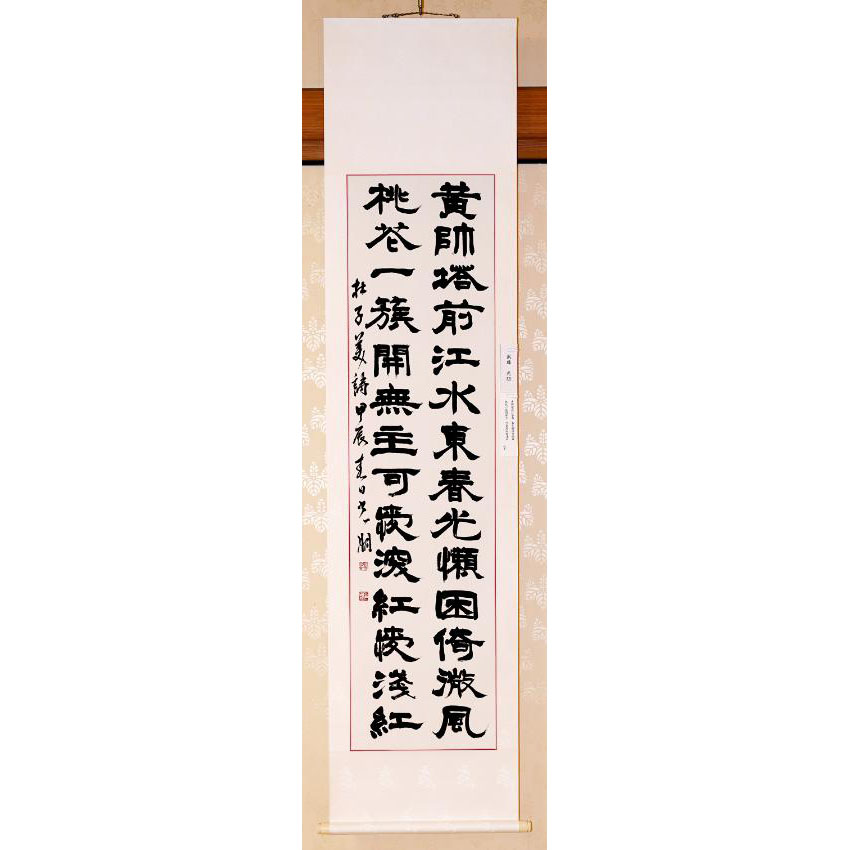 黄帥塔前江水東春光懶困倚微風
桃花一簇開無主可愛深紅愛淺紅
杜子美詩甲辰春日